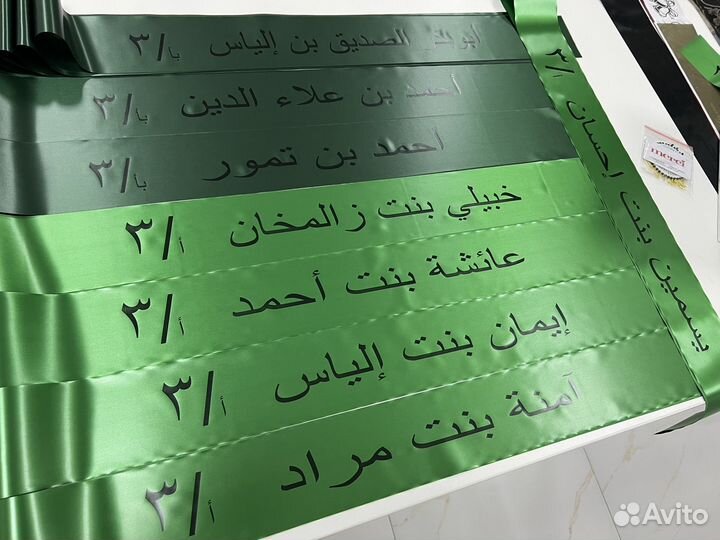 أبو بكر الصديق بن إلياس ٣/با
أحمد بن علاء الدين ٣/با
أحمد بن تمور ٣/با
خبيلي بنت زالمخان ٣/أ
عائشة بنت أحمد ٣/أ
إيمان بنت إلياس ٣/أ
آمنة بنت مراد ٣/أ
يسمين بنت إحسان ٣/أ
merci
Avito